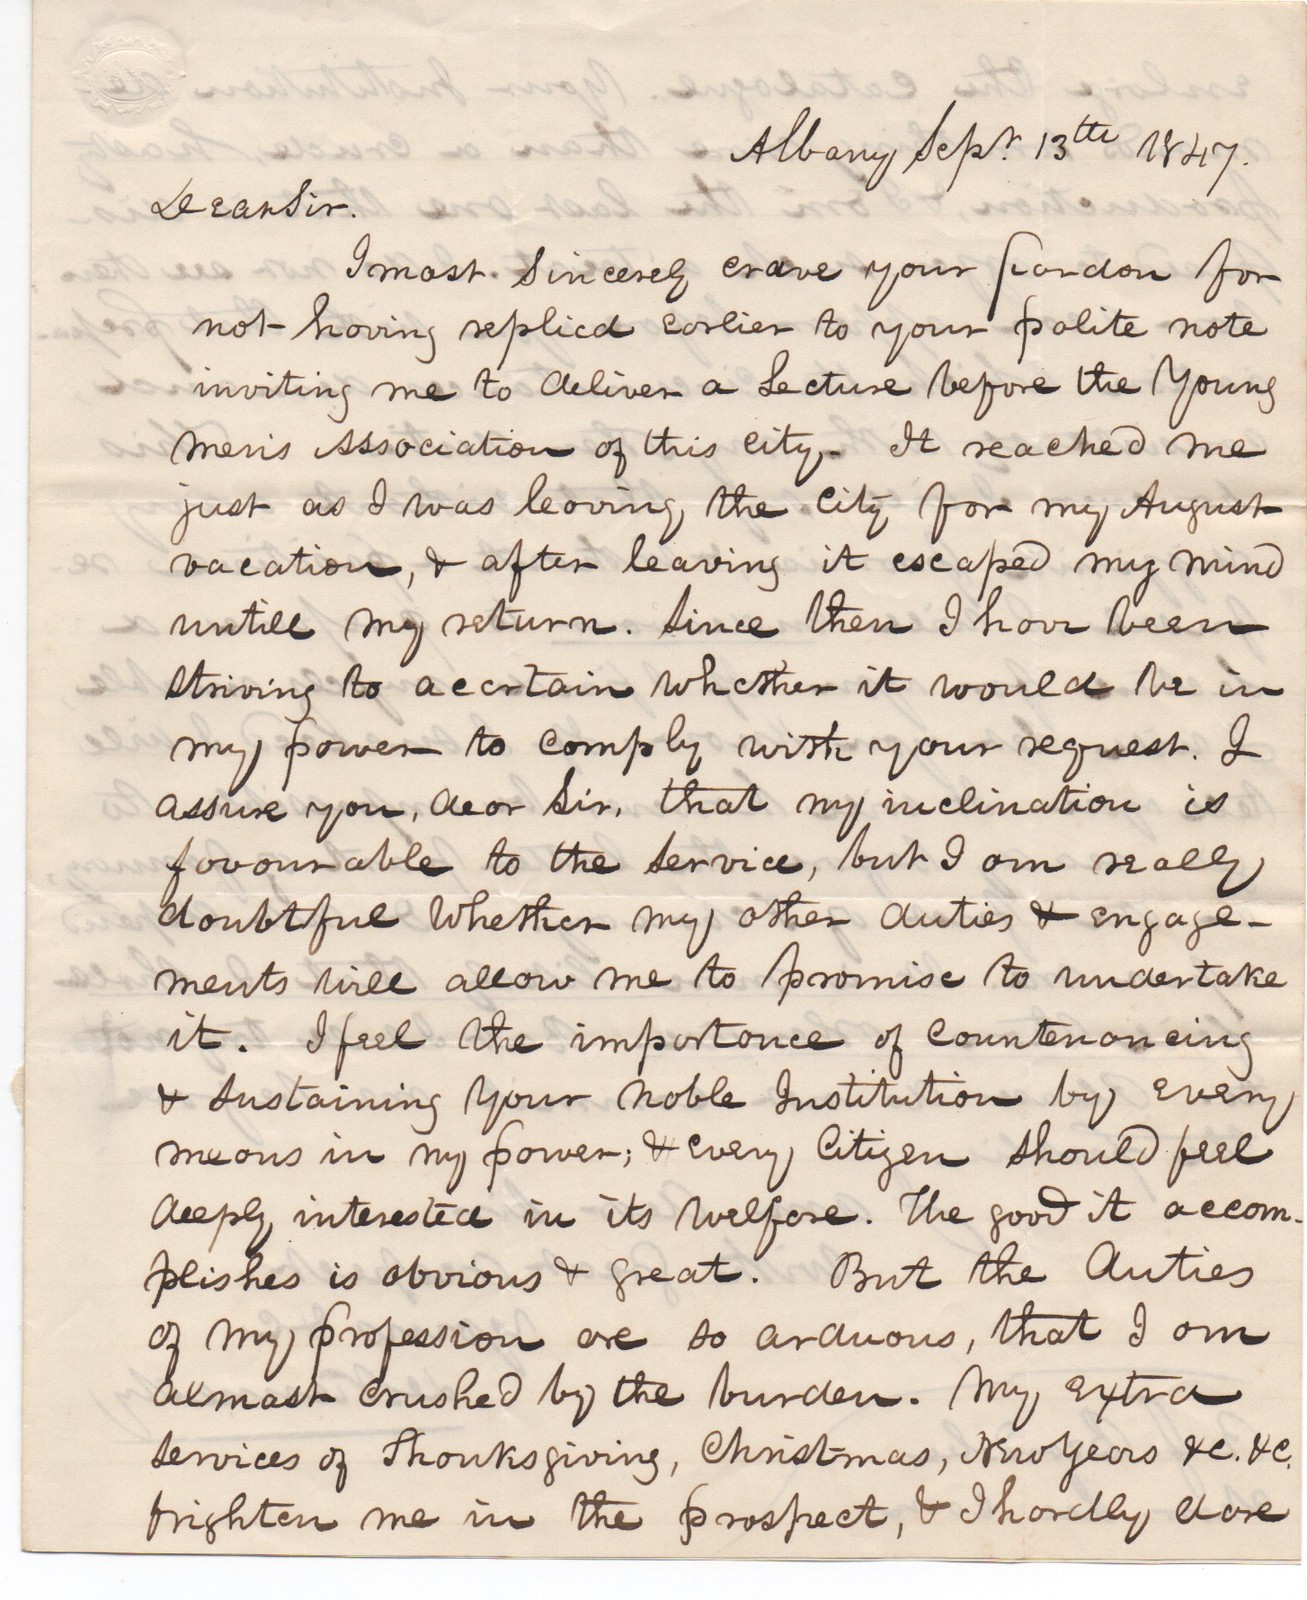 Albany Sept. 13th 1847.
Dear Sir.
I most sincerely crave your pardon for
not having replied earlier to your polite note
inviting me to deliver a Lecture before the Young
Men's Association of this city. It reached me
just as I was leaving the city for my August
vacation, & after leaving it escaped my mind
untill my return. Since then I have been
striving to acertain whether it would be in
my power to comply with your request. I
assure you, dear Sir, that my inclination is
favourable to the service, but I am really
doubtful whether my other duties & engage-
ments will allow me to promise to undertake
it. I feel the importance of countenancing
& sustaining your noble Institution by every
means in my power; & every Citizen should feel
deeply interested in its welfare. The good it accom-
plishes is obvious & great. But the duties
of my profession are so arduous, that I am
almost crushed by the burden. My extra
services of Thanksgiving, Christmas, New Years &c. &c.
frighten me in the prospect, & I hardly dare